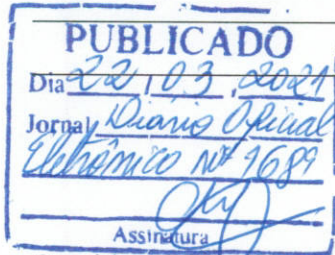 PUBLICADO
Dia 22, 03, 2021
Jornal Diário Oficial
Eletrônico nº 1689
Assinatura